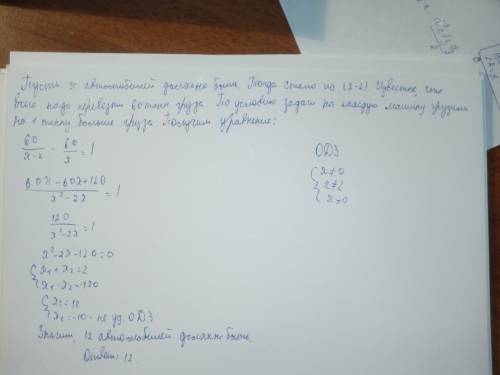 Пусть x автомобилей должно быть. Тогда стало на (x-2). Известно, что
всего надо перевезти 60 тонн груза. По условию задачи на каждую машину грузили
на 1 тонну больше груза. Получим уравнение:
60/(x-2) - 60/x = 1
ОДЗ
{x≠0
x≠2
x>0
(60x-60x+120)/(x²-2x) = 1
120/(x²-2x) = 1
x²-2x-120=0
{x₁+x₂=2
x₁·x₂=-120
{x₁=12
x₂=-10 - не уд. ОДЗ
Значит, 12 автомобилей должно быть.
Ответ: 12.